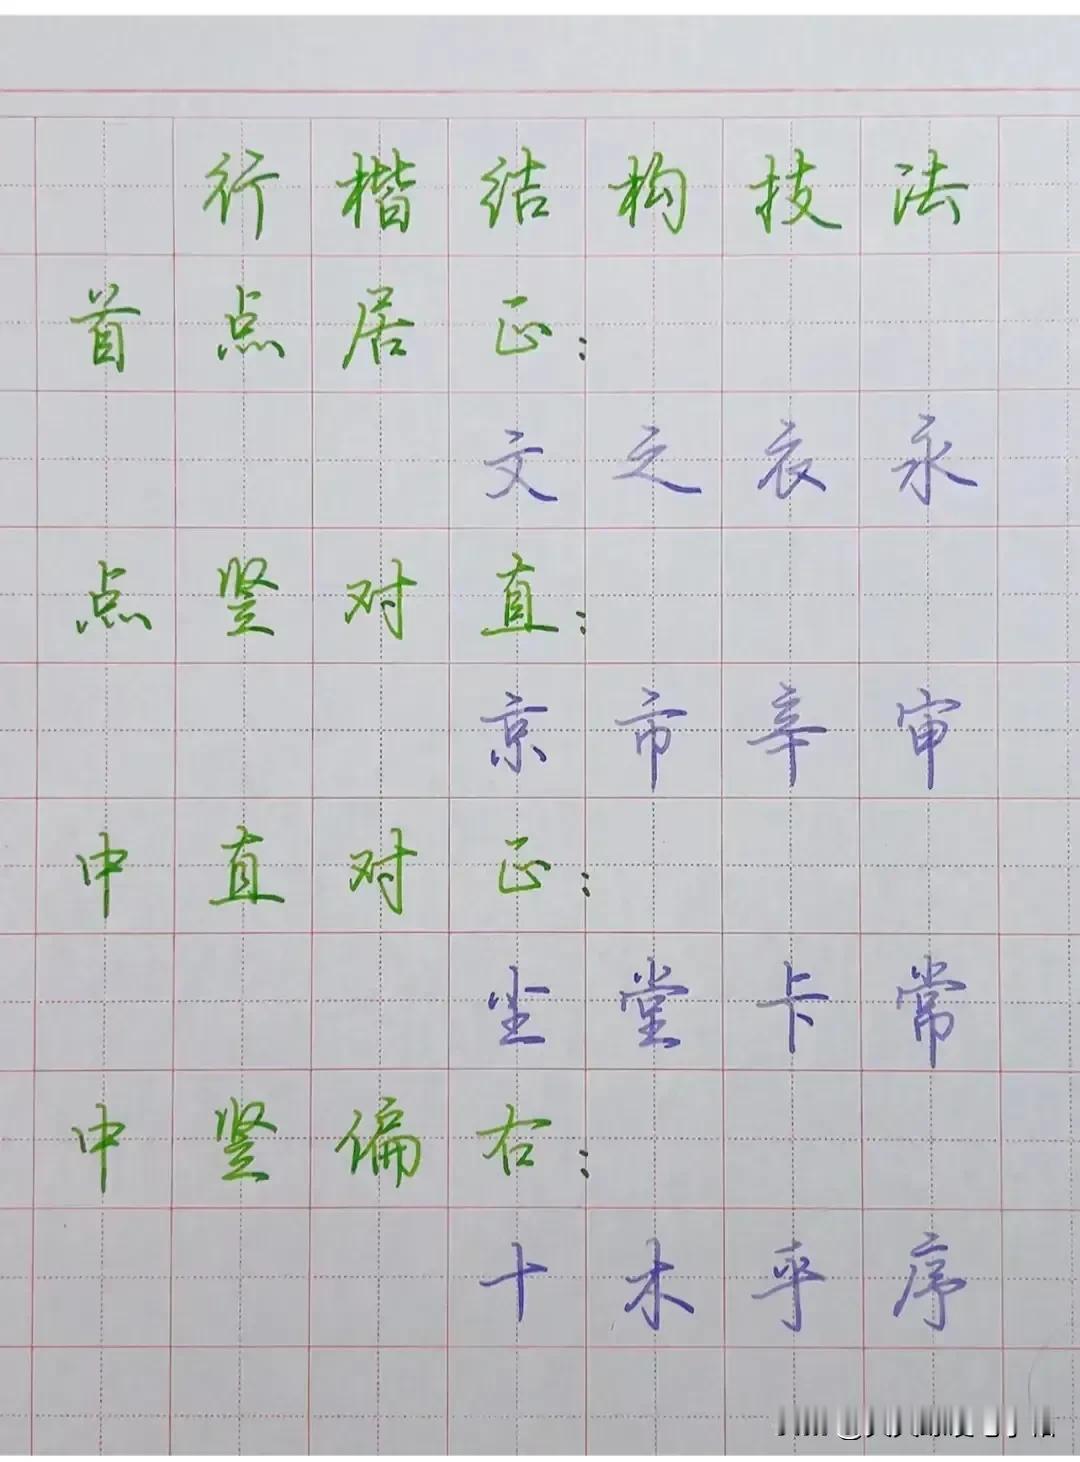 行楷结构技法
首点居正：
文之衣永
点竖对直：
京市辛审
中直对正：
尘堂卡常
中竖偏右：
十木平序